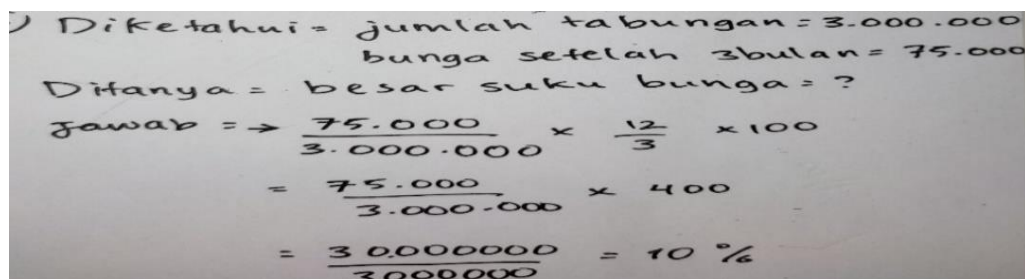 ) Diketahui = jumlah tabungan = 3.000.000
bunga setelah 3bulan = 75.000
Ditanya = besar suku bunga = ?
Jawab = → 75.000 / 3.000.000 × 12 / 3 × 100
= 75.000 / 3.000.000 × 400
= 30.000000 / 3000000 = 10 %